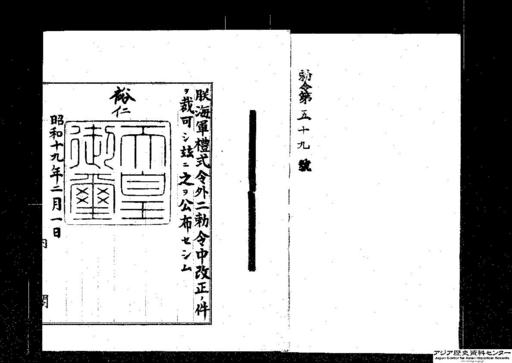 勅令第五十九號
朕海軍禮式令外二勅令中改正ノ件
ヲ裁可シ玆ニ之ヲ公布セシム
裕仁
天皇御璽
昭和十九年二月一日
内閣
アジア歴史資料センター
Japan Center for Asian Historical Records